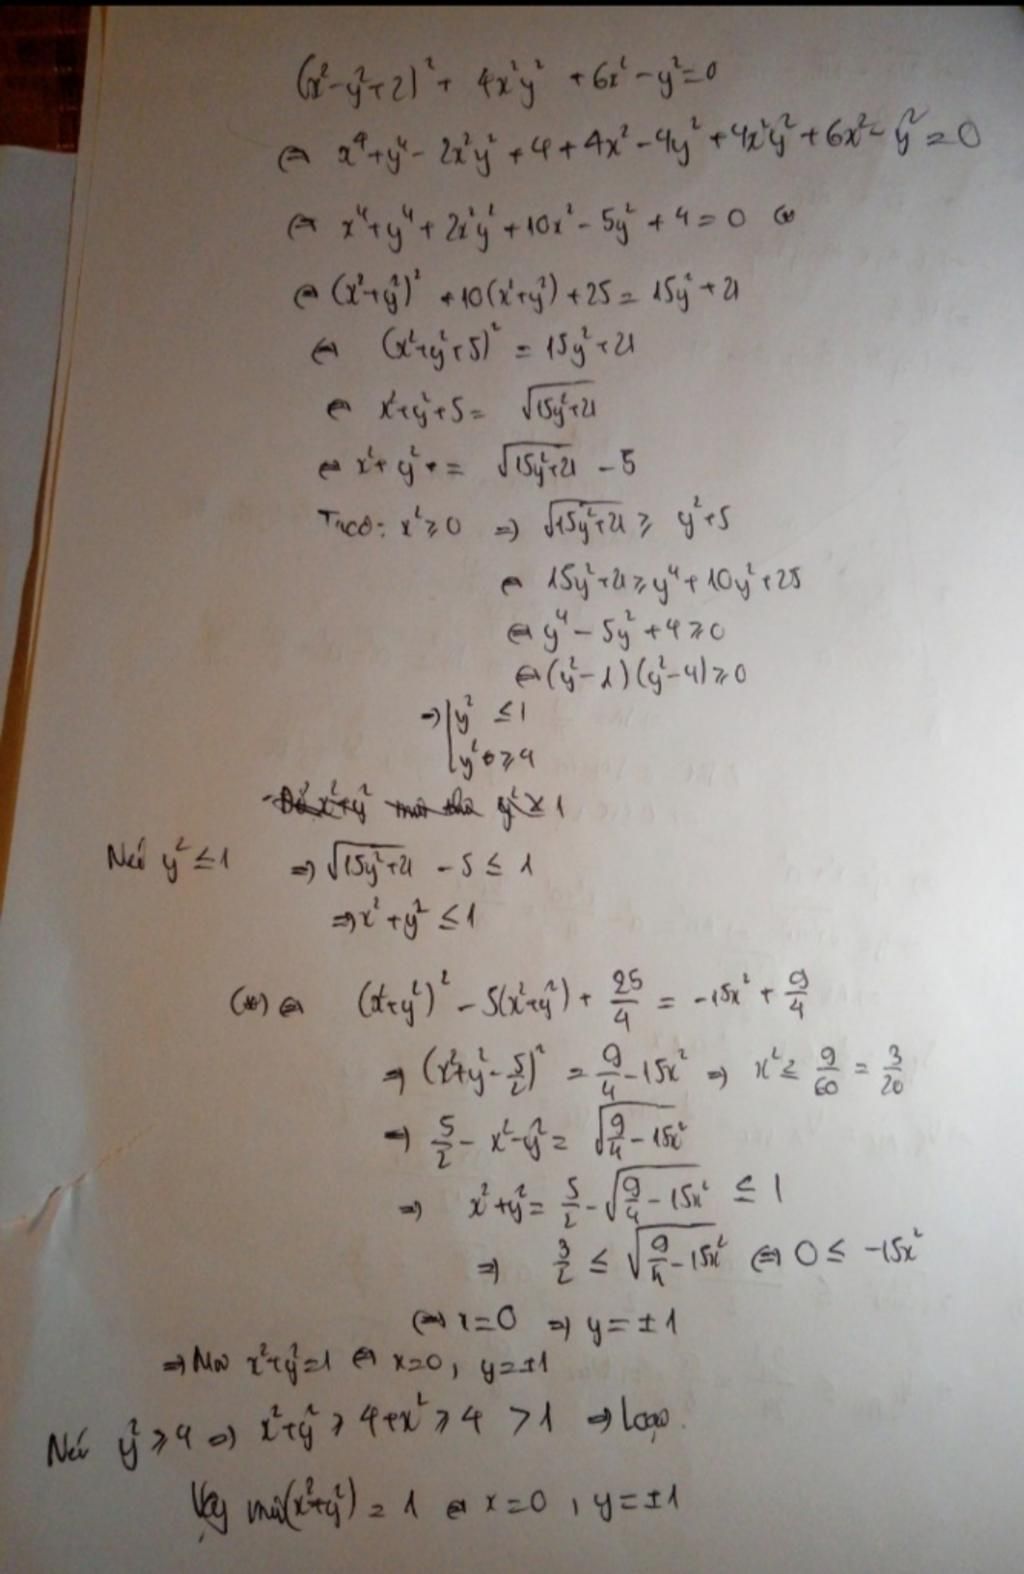 (x²-y²+2)² + 4x²y² + 6x² - y² = 0
⇔ x⁴+y⁴ - 2x²y² + 4 + 4x² - 4y² + 4x²y² + 6x² - y² = 0
⇔ x⁴+y⁴ + 2x²y² + 10x² - 5y² + 4 = 0 (*)
⇔ (x²+y²)² + 10(x²+y²) + 25 = 15y² + 21
⇔ (x²+y²+5)² = 15y²+21
⇔ x²+y²+5 = √(15y²+21)
⇔ x²+y² = √(15y²+21) - 5
Ta có: x² ≥ 0 ⇒ √(15y²+21) ≥ y²+5
⇔ 15y²+21 ≥ y⁴ + 10y² + 25
⇔ y⁴ - 5y² + 4 ≥ 0
⇔ (y²-1)(y²-4) ≥ 0
⇒ [y² ≤ 1
y² ≥ 4
x²+y² y² 1
Nếu y² ≤ 1 ⇒ √(15y²+21) - 5 ≤ 1
⇒ x²+y² ≤ 1
(*) ⇔ (x²+y²)² - 5(x²+y²) + 25/4 = -15x² + 9/4
⇒ (x²+y²-5/2)² = 9/4 - 15x² ⇒ x² ≤ 9/60 = 3/20
⇒ 5/2 - x² - y² = √(9/4 - 15x²)
⇒ x²+y² = 5/2 - √(9/4 - 15x²) ≤ 1
⇒ 3/2 ≤ √(9/4 - 15x²) ⇔ 0 ≤ -15x²
⇔ x=0 ⇒ y=±1
⇒ Min x²+y²=1 ⇔ x=0, y=±1
Nếu y² ≥ 4 ⇒ x²+y² ≥ 4+x² ≥ 4 > 1 ⇒ Loại.
Vậy min(x²+y²) = 1 ⇔ x=0, y=±1